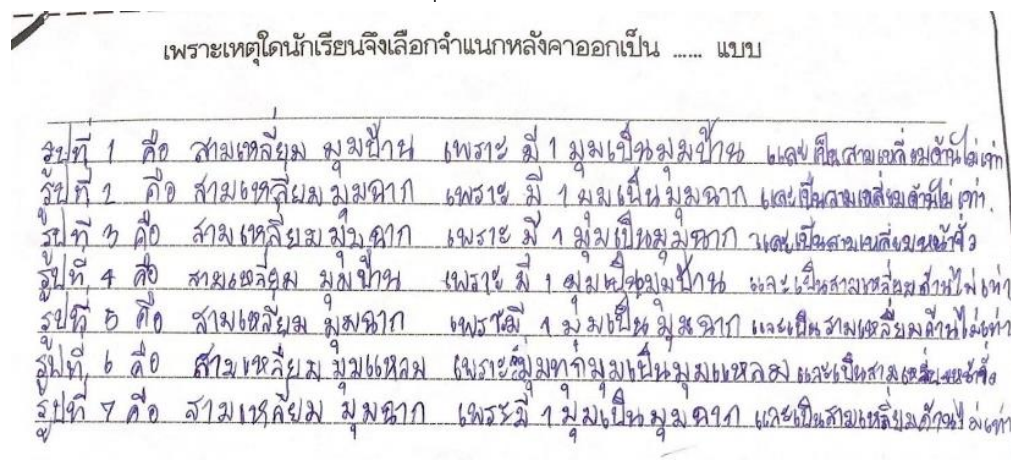 เพราะเหตุใดนักเรียนจึงเลือกจำแนกหลังคาออกเป็น ...... แบบ
รูปที่ 1 คือ สามเหลี่ยม มุมป้าน เพราะ มี 1 มุมเป็นมุมป้าน และเป็นสามเหลี่ยมด้านไม่เท่า
รูปที่ 2 คือ สามเหลี่ยมมุมฉาก เพราะ มี 1 มุมเป็นมุมฉาก และเป็นสามเหลี่ยมด้านไม่เท่า.
รูปที่ 3 คือ สามเหลี่ยมมุมฉาก เพราะ มี 1 มุมเป็นมุมฉาก และเป็นสามเหลี่ยมหน้าจั่ว
รูปที่ 4 คือ สามเหลี่ยม มุมป้าน เพราะ มี 1 มุมเป็นมุมป้าน และเป็นสามเหลี่ยมด้านไม่เท่า
รูปที่ 5 คือ สามเหลี่ยม มุมฉาก เพราะมี 1 มุมเป็น มุมฉาก และเป็นสามเหลี่ยมด้านไม่เท่า
รูปที่ 6 คือ สามเหลี่ยม มุมแหลม เพราะมุมทุกมุมเป็นมุมแหลม และเป็นสามเหลี่ยมหน้าจั่ว
รูปที่ 7 คือ สามเหลี่ยม มุมฉาก เพระมี 1 มุมเป็นมุมฉาก และเป็นสามเหลี่ยมด้านไม่เท่า